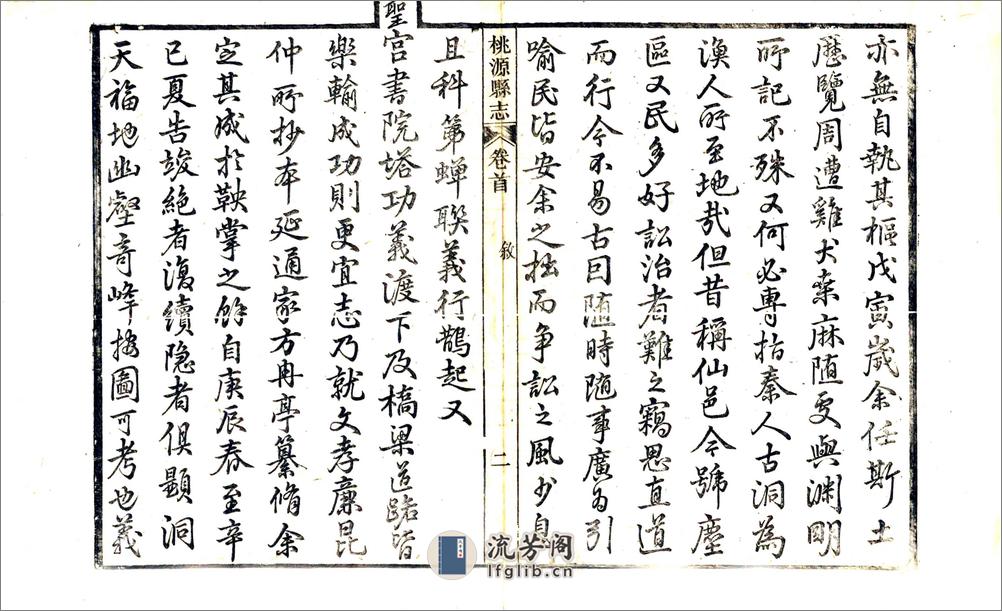 亦無自執其樞戊寅歲余任斯土
歷覽周遭雞犬桑麻随处與渊明
所記不殊又何必專指秦人古洞為
漁人所至地哉但昔稱仙邑今號塵
區又民多好訟治者難之竊思直道
而行今不易古囙随時随事廣为引
喻民皆安余之拙而争訟之風少息
桃源縣志
卷首
敘
二
且科第蟬聯義行鵲起又
聖宫書院塔功義渡下及橋梁道路皆
樂輸成功則更宜志乃就文孝廉昆
仲所抄本延通家方冉亭纂脩余
定其成於鞅掌之餘自庚辰春至辛
巳夏告竣絕者復續隐者俱顯洞
天福地幽壑奇峰按圖可考也義
流芳阁
lfglib.cn